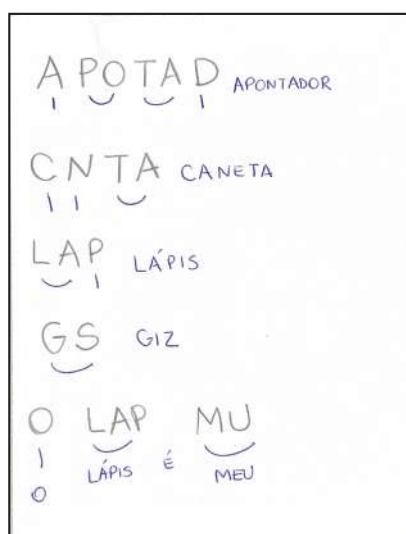 APOTAD APONTADOR
CNTA CANETA
LAP LÁPIS
GS GIZ
O LAP MU
O LÁPIS É MEU